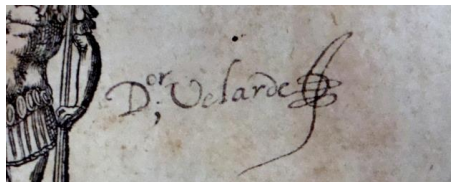 Dor; Velarde